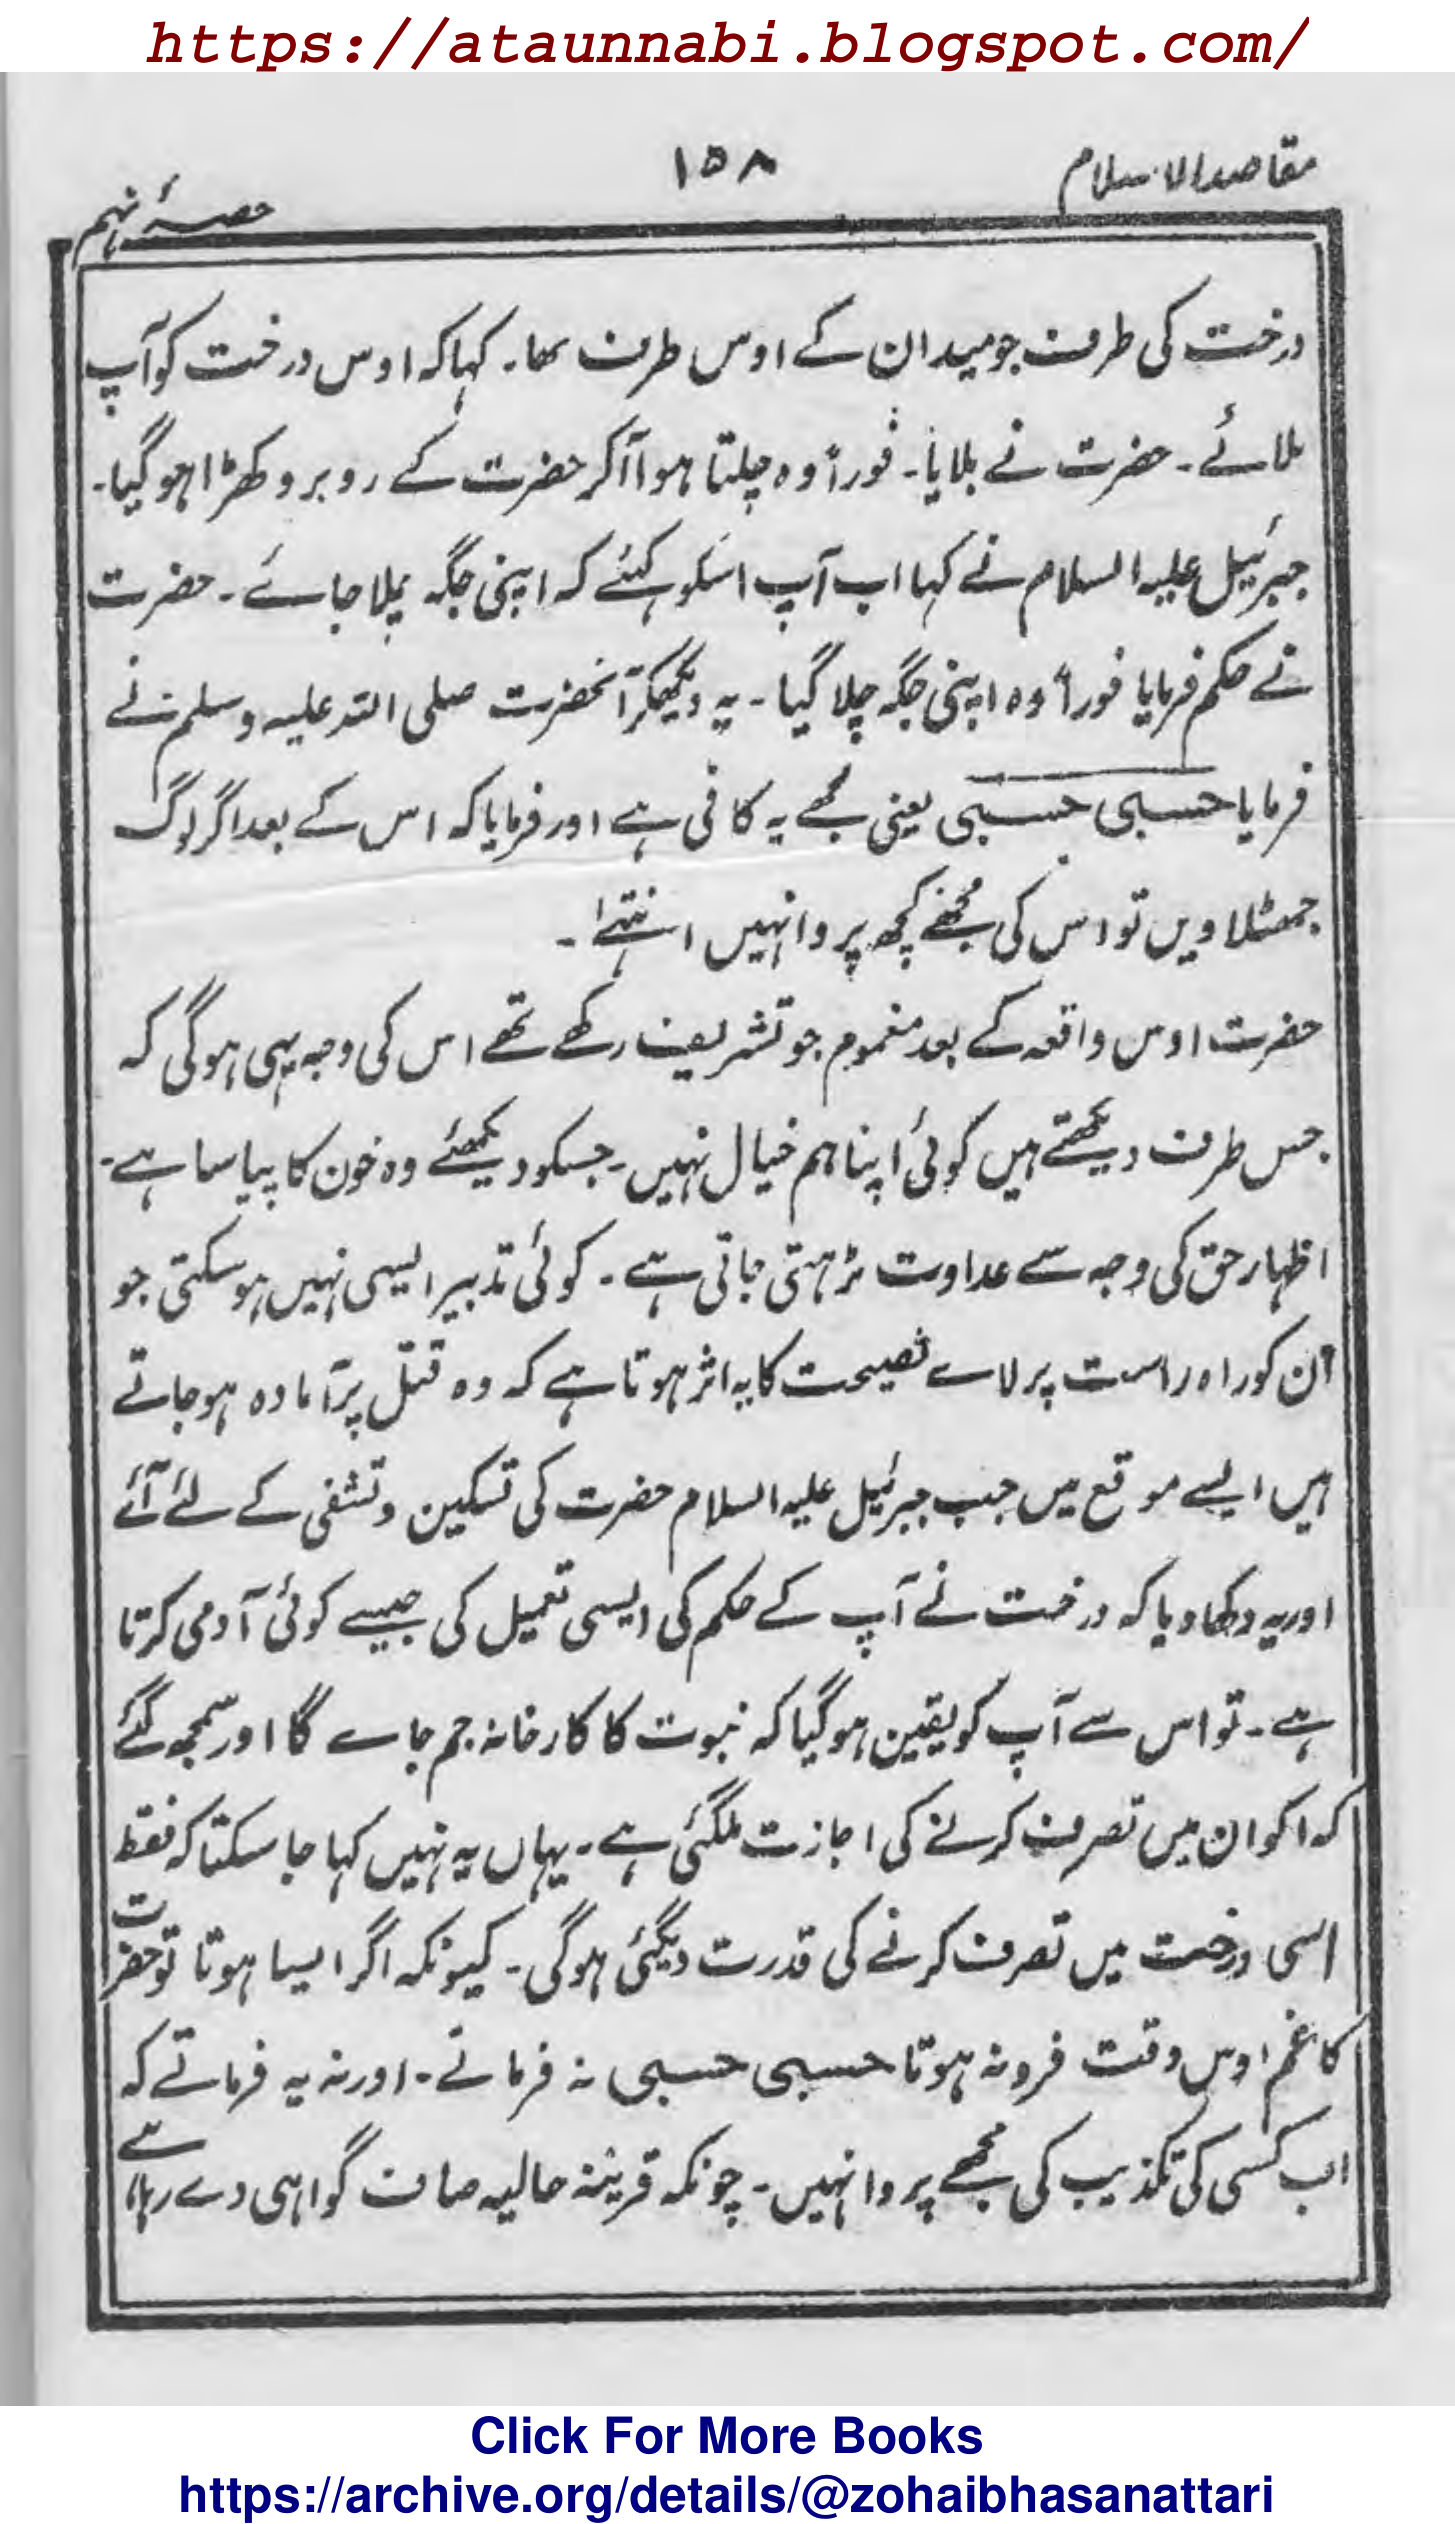 https://ataunnabi.blogspot.com/
مقاصد الاسلام
۱۵۸
حصۂ نہم
درخت کی طرف جو میدان کے اوس طرف تھا۔ کہا کہ اوس درخت کو آپ
بلائے۔ حضرت نے بلایا۔ فوراً وہ چلتا ہوا آکر حضرت کے روبرو کھڑا ہوگیا۔
جبرئیل علیہ السلام نے کہا اب آپ اسکو کہئے کہ اپنی جگہ چلا جائے۔ حضرت
نے حکم فرمایا فوراً وہ اپنی جگہ چلا گیا۔ یہ دیکھکر آنحضرت صلی اللہ علیہ وسلم نے
فرمایا حسبی حسبی یعنی مجھے یہ کافی ہے اور فرمایا کہ اس کے بعد اگر لوگ
جھٹلاویں تو اس کی مجھے کچھ پروا نہیں انتہٰے۔
حضرت اوس واقعہ کے بعد مغموم جو تشریف رکھے تھے اس کی وجہ یہی ہوگی کہ
جس طرف دیکھتے ہیں کوئی اپنا ہم خیال نہیں۔ جسکو دیکھئے وہ خون کا پیاسا ہے۔
اظہار حق کی وجہ سے عداوت بڑہتی جاتی ہے۔ کوئی تدبیر ایسی نہیں ہوسکتی جو
اُن کو راہ راست پر لاے نصیحت کا یہ اثر ہوتا ہے کہ وہ قتل پر آمادہ ہوجاتے
ہیں ایسے موقع میں جب جبرئیل علیہ السلام حضرت کی تسکین وتشفی کے لئے آئے
اور یہ دکھا دیا کہ درخت نے آپ کے حکم کی ایسی تعمیل کی جیسے کوئی آدمی کرتا
ہے۔ تو اس سے آپ کو یقین ہوگیا کہ نبوت کا کارخانہ جم جاے گا اور سمجھ گئے
کہ اکوان میں تصرف کرنے کی اجازت ملگئی ہے۔ یہاں یہ نہیں کہا جا سکتا کہ فقط
اسی درخت میں تصرف کرنے کی قدرت دیگئی ہوگی۔ کیونکہ اگر ایسا ہوتا تو حضرت
کا غم اوس وقت فرو نہ ہوتا حسبی حسبی نہ فرماتے۔ اور نہ یہ فرماتے کہ
اب کسی کی تکذیب کی مجھے پروا نہیں۔ چونکہ قرینۂ حالیہ صاف گواہی دے رہا ہے
Click For More Books
https://archive.org/details/@zohaibhasanattari